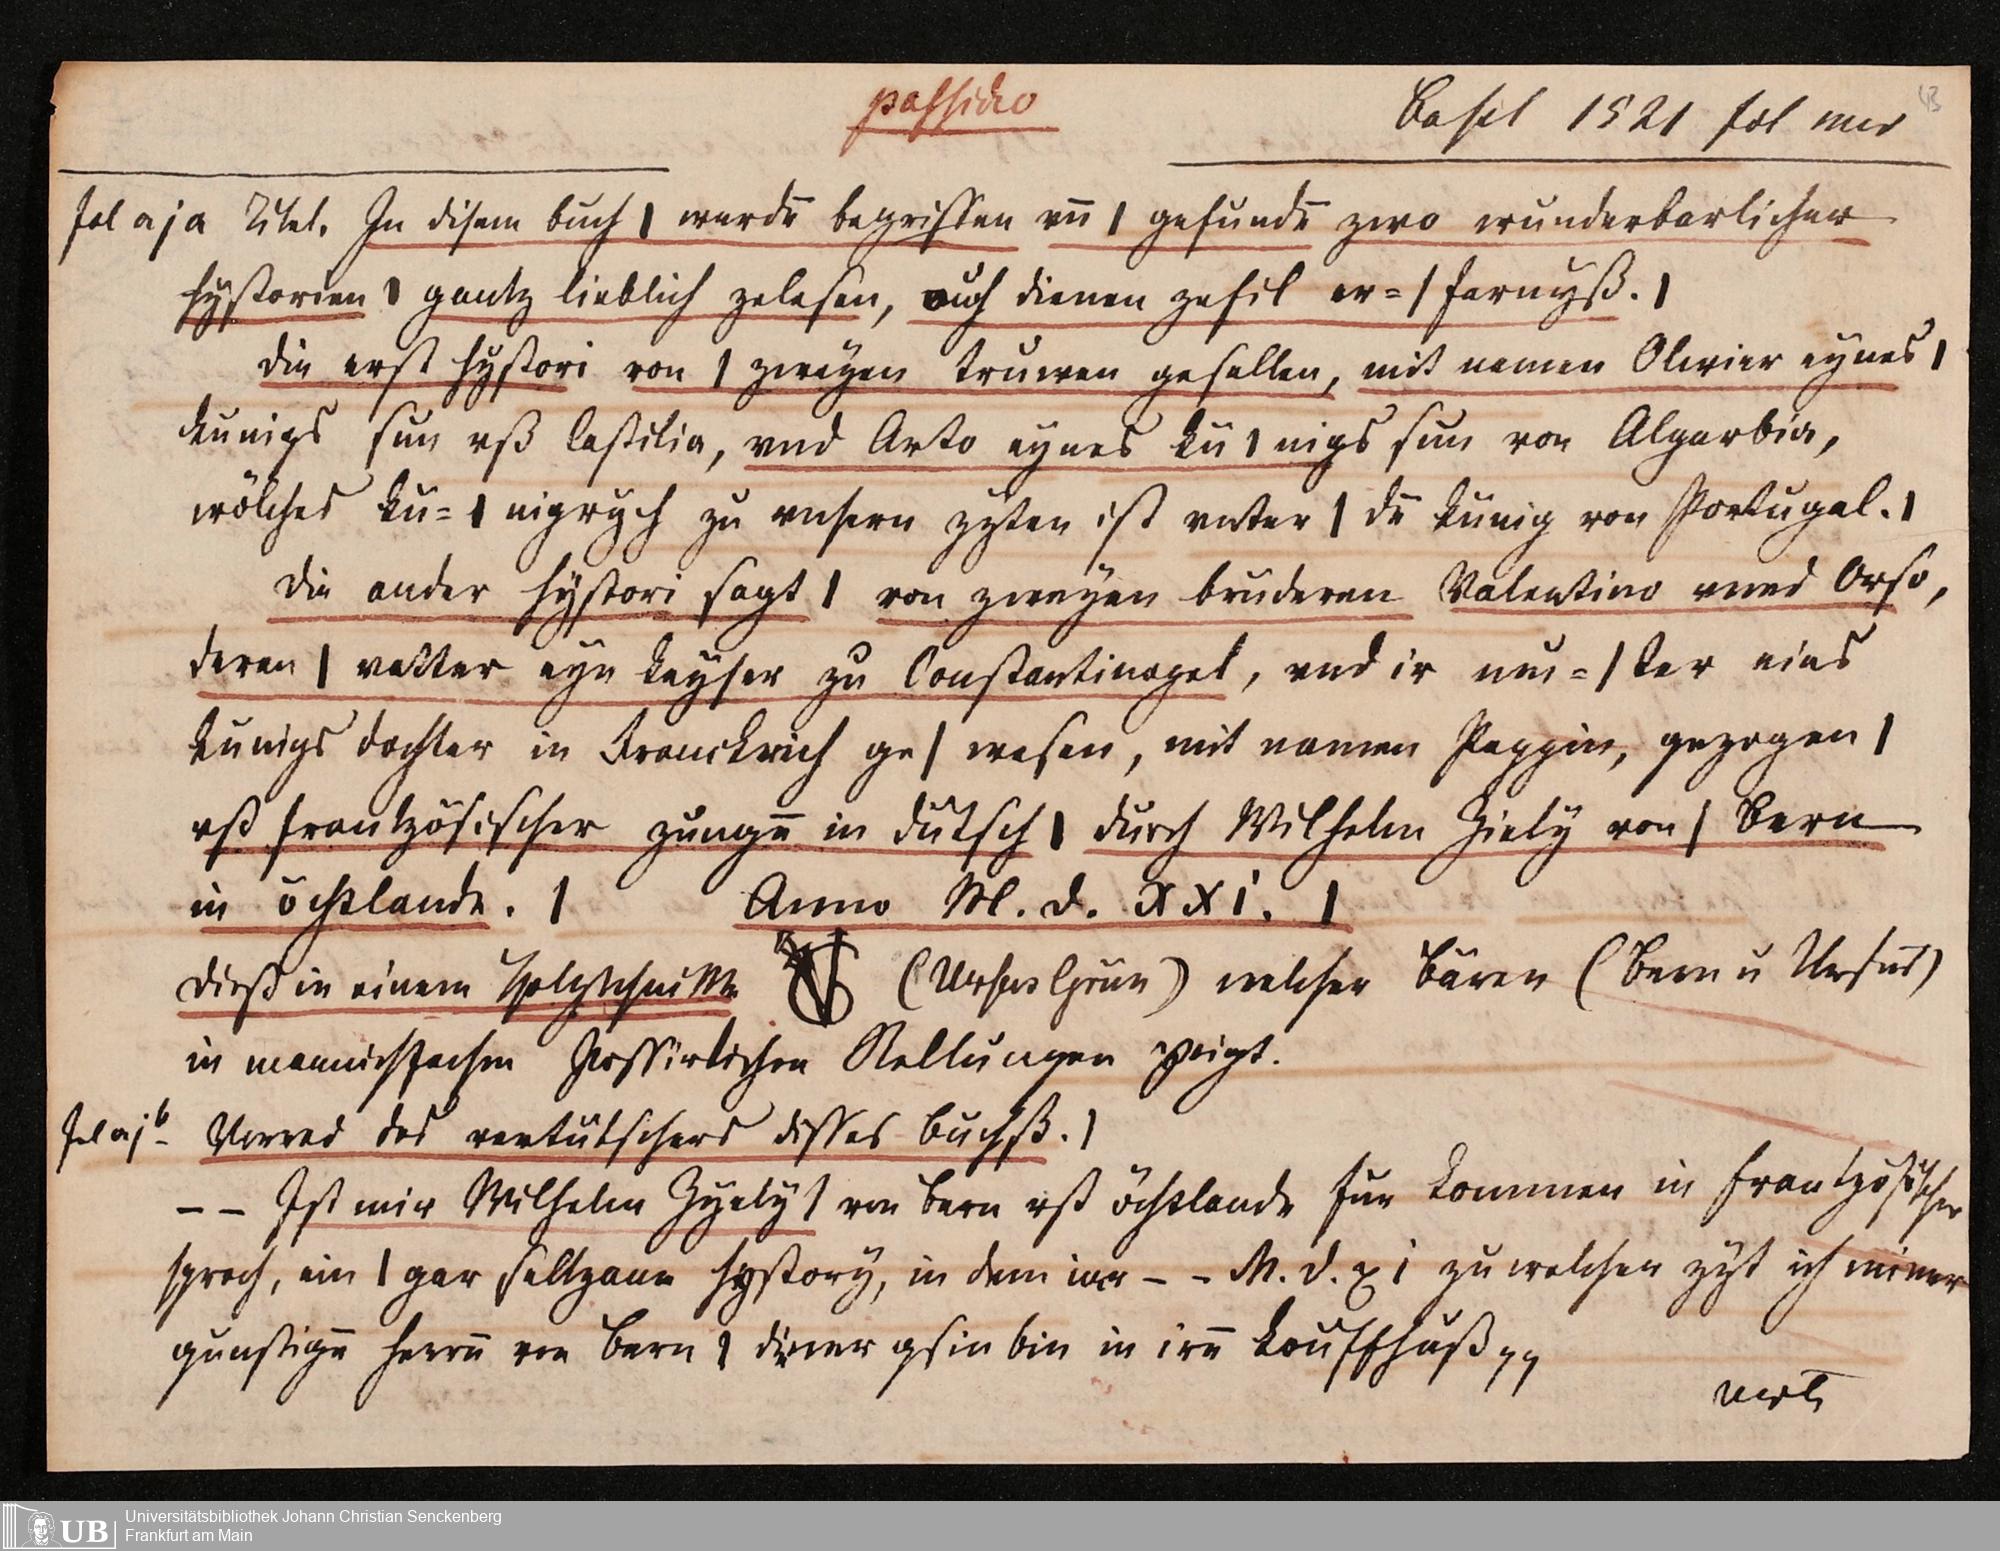 passido
Basil 1521 fol
43
fol aja Titel. In disem buch | werdē begriffen vn̄ | gefundē zwo wunderbarlicher
hystorien | gantz lieblich zelesen, ouch dienen zefil er=| farnyß. |
die erst hystori von | zweyen truwen gesellen, mit namen Olivier eynes |
kunigs sun vß Castilia, vnd Arto eynes kü | nigs sun von Algarbia,
wölches kü= | nigrych zu vnsern zyten ist vnter | dē künig von Portugal. |
Die ander hystori sagt | von zweyen bruderen Valentino vnnd Orso,
deren | vatter eyn keyser zu Constantinopel, vnd ir mu= | ter eins
kunigs dochter in Franckrich ge | wesen, mit namen Peppin, gezogen |
vß frantzösischer zungē in dütsch | durch Wilhelm Ziely von | Bern
in öchtlande. | Anno M. d. XXI. |
Dieß in einem Holzschnitte VG (Ursus Grün) welcher Bären (Bern u Ursus)
in mannichfachen Possirlichen Stellungen zeigt.
fol ajb Vorred des vertütschers disses buchß. |
-- Ist mir Wilhelm Zyely | von Bern vß öchtlande für kommen in frantzösischer
sproch, ein | gar seltzame hystory, in dem iar -- M. d. xi zu welcher zyt ich miner
gunstigē herrn̄ von Bern | diener gsin bin in irē kouffhuß